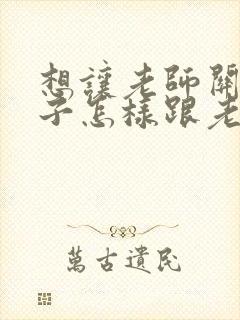 想讓老師關
子怎樣跟老
萬古遺民